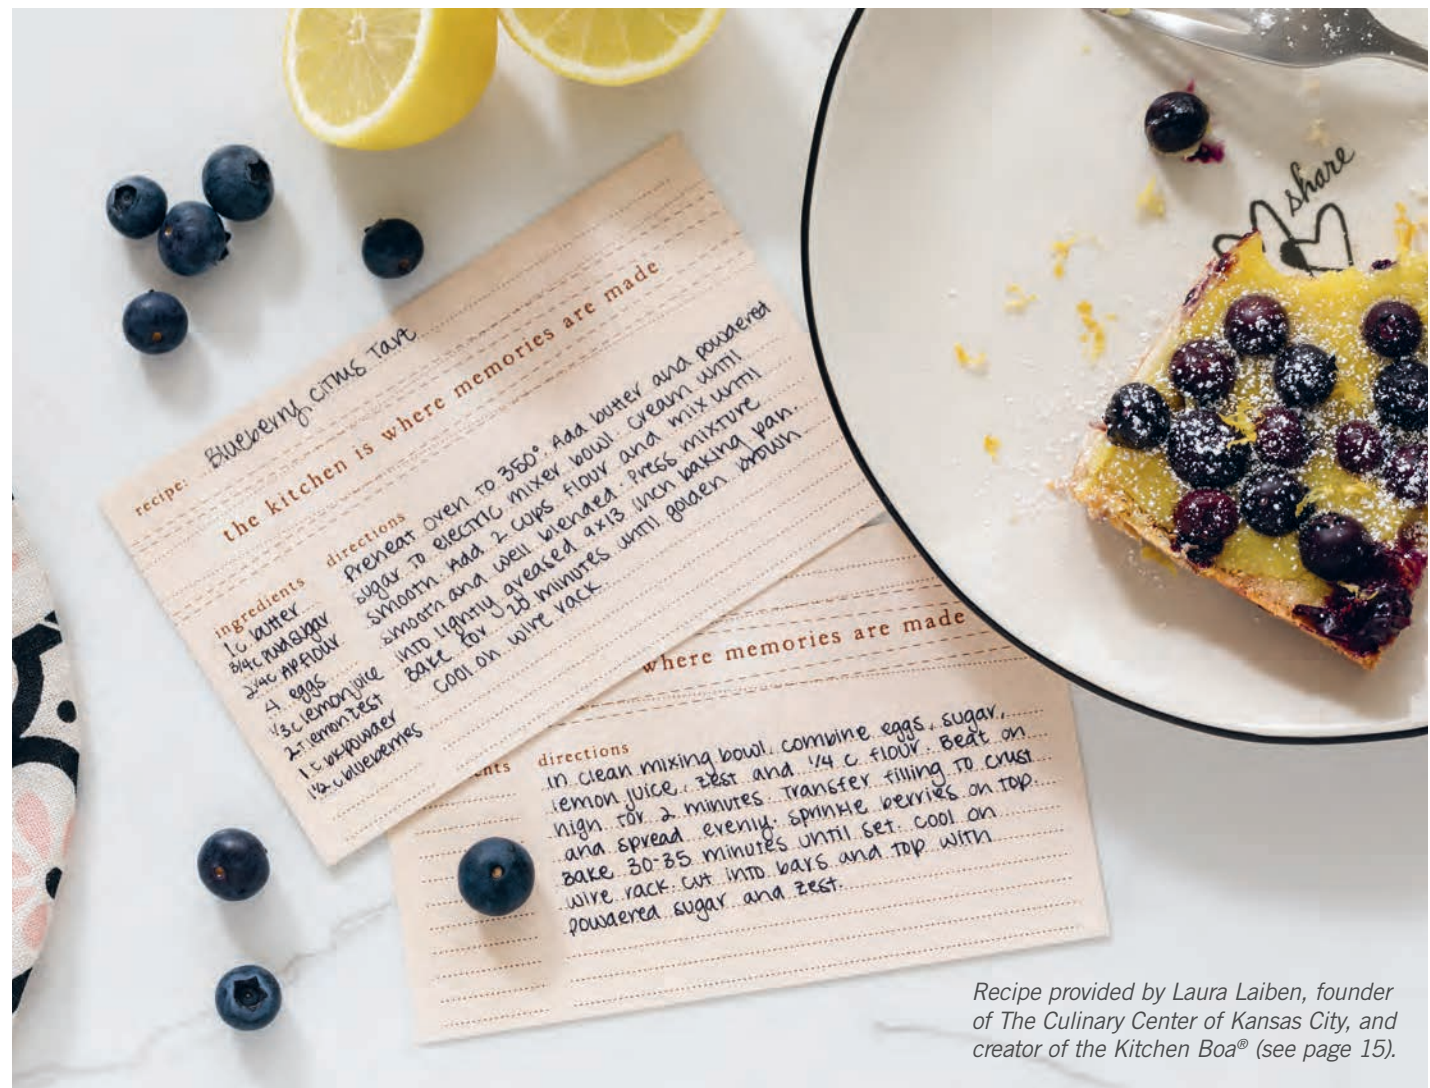 recipe: Blueberry Citrus Tart
the kitchen is where memories are made
ingredients
1 c butter
3/4 c pwd sugar
2 1/4 c AP flour
4 eggs
1/3 c lemon juice
2 T lemon zest
1 t bk powder
1 1/2 c blueberries
directions
Preheat oven to 350° Add butter and powdered
sugar to electric mixer bowl. Cream until
smooth. Add 2 cups flour and mix until
smooth and well blended. Press mixture
into lightly greased 9x13 inch baking pan.
Bake for 28 minutes until golden brown
cool on wire rack.
where memories are made
ents
directions
In clean mixing bowl, combine eggs, sugar,
lemon juice, zest and 1/4 c flour. Beat on
high for 2 minutes. Transfer filling to crust
and spread evenly. Sprinkle berries on top.
Bake 30-35 minutes until set. Cool on
wire rack. Cut into bars and top with
powdered sugar and zest.
share
Recipe provided by Laura Laiben, founder
of The Culinary Center of Kansas City, and
creator of the Kitchen Boa® (see page 15).